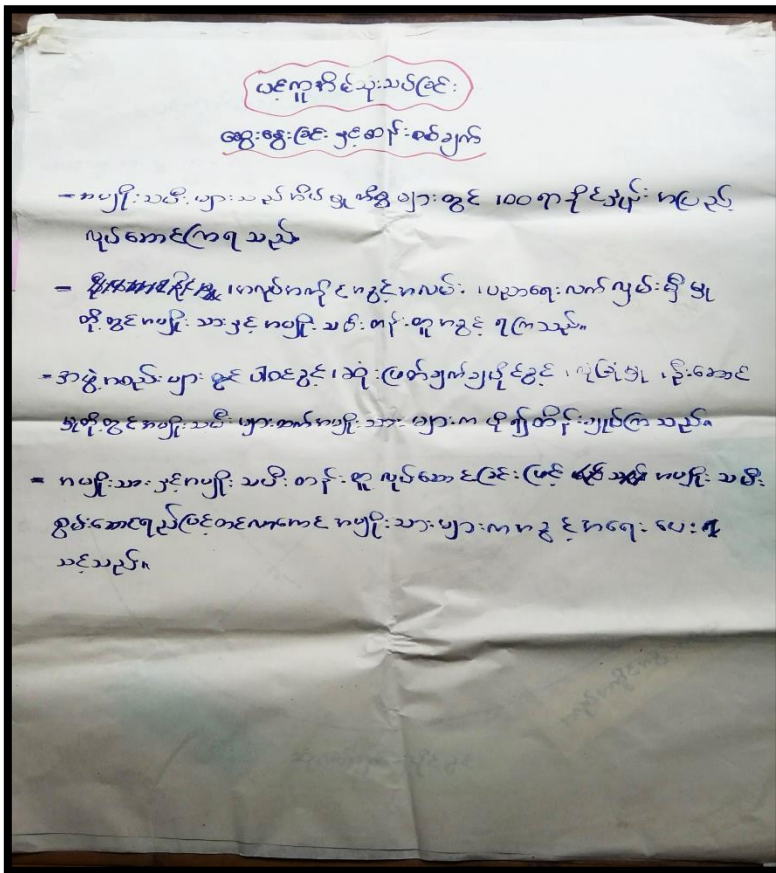 ပင့်ကူအိမ်သုံးသပ်ခြင်း
ဆွေးနွေးခြင်း နှင့်စာန်းစစ်ချက်
- အမျိုးသမီးများသည်အိမ်မှုကိစ္စများတွင် 100 ရာခိုင်နှုန်း အပြည့်
လုပ်ဆောင်ကြရသည်
- ၊အလုပ်အကိုင်အခွင့်အလမ်း၊ ပညာရေး လက်လှမ်းမှီမှု
တို့တွင်အမျိုးသားနှင့်အမျိုးသမီးတန်းတူအခွင့် ရကြသည်။
- အဖွဲ့အစည်းများတွင် ပါဝင်ခွင့်၊ ဆုံးဖြတ်ချက်ချပိုင်ခွင့် ၊လုံခြုံမှု ၊ဦးဆောင်
မှုတို့တွင်အမျိုးသမီးများထက်အမျိုးသားများက ပို၍ထိန်းချုပ်ကြသည်။
- အမျိုးသားနှင့်အမျိုးသမီးတန်းတူ လုပ်ဆောင်ခြင်းဖြင့် အမျိုးသမီး
စွမ်းဆောင်ရည်မြင့်တင်လာအောင် အမျိုးသားများကအခွင့်အရေးပေး
သင့်သည်။